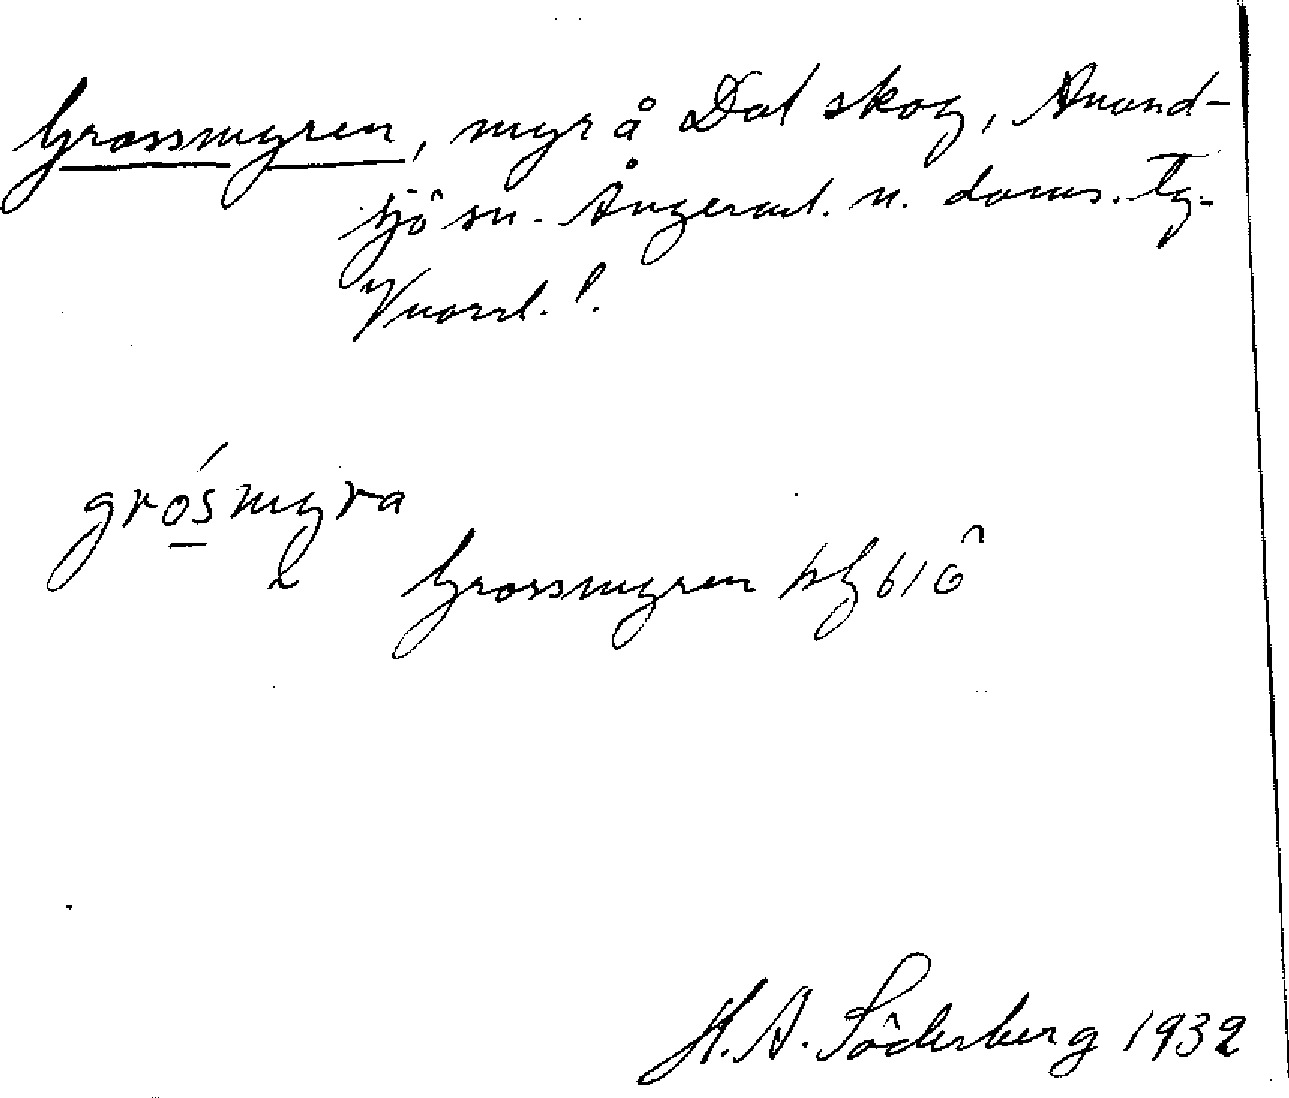 Grossmyren, myr å Dal skog, Anund-
sjö sn. Ångerml. n. doms. tg.
Vnorrl. l.
grósmyra
Grossmyren kg 616
H. A. Söderberg 1932